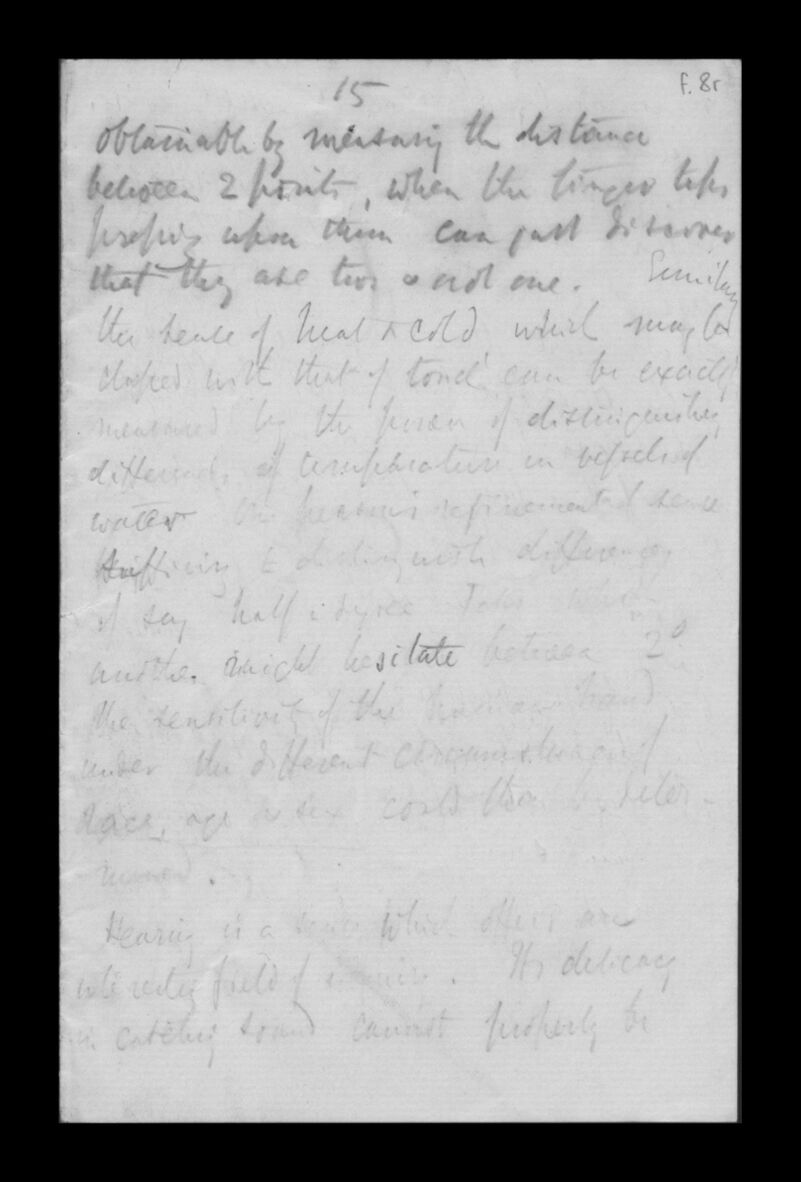 15
f. 8r
obtainable by measuring the distance
between 2 points, when the finger tips
pressing upon them can just discover
that they are two & not one. Similarly
the sense of heat & cold which may be
classed with that of touch can be exactly
measured by the power of distinguishing
differences of temperature in vessels of
water One person's refinement of sense
sufficing to distinguish differences
of say half a degree
another might hesitate between 2°
the sensitivity of the human hand
under the different circumstances of
Race, age & sex could thus be deter-
mined.
Hearing is a sense which offers an
interesting field of inquiry. Its delicacy
in catching sound cannot properly be